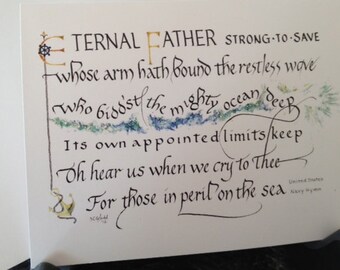 ETERNAL FATHER STRONG·TO·SAVE
whose arm hath bound the restless wave
who bidd'st the mighty ocean deep
Its own appointed limits keep
Oh hear us when we cry to Thee
For those in peril on the sea
United States
Navy Hymn